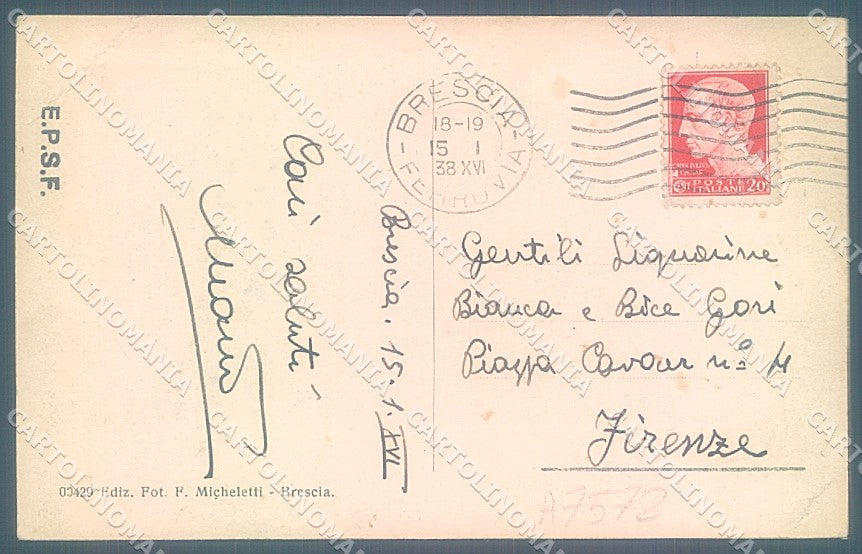 E.P.S.F.
BRESCIA
18-19
15 I
38 XVI
FERROVIA
POSTE
ITALIANE 20
Cari saluti
Brescia. 15.1.XVI
Gentili Signorine
Bianca e Bice Gori
Piazza Cavour nº 4
Firenze
00429 Ediz. Fot. F. Micheletti - Brescia.
A7572
CARTOLINOMANIA